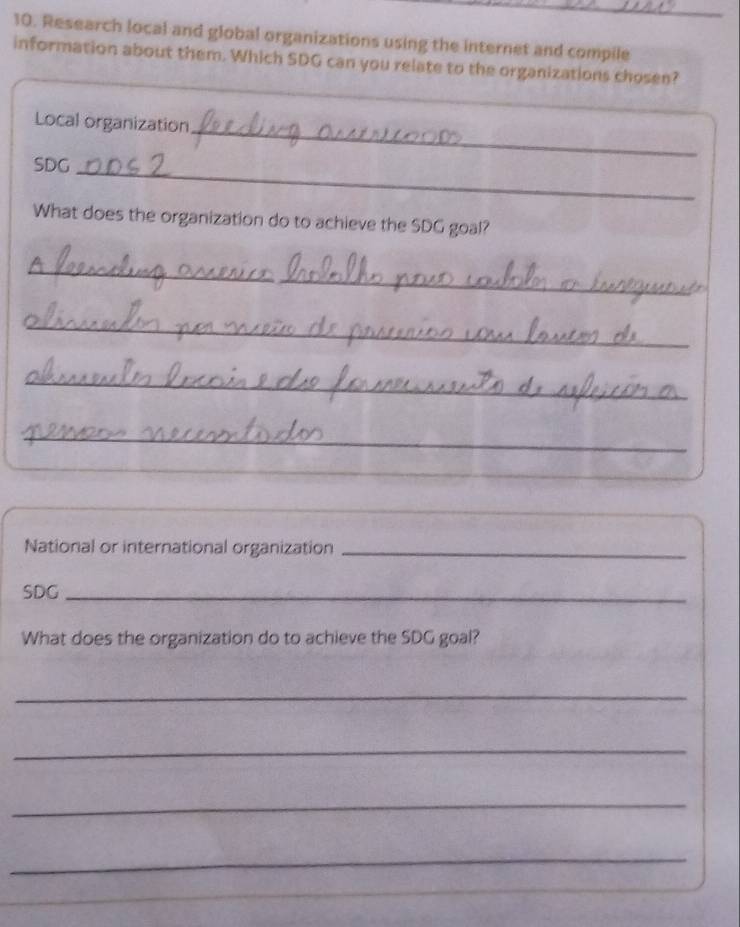 10. Research local and global organizations using the internet and compile
information about them. Which SDG can you relate to the organizations chosen?
Local organization feeding american
SDG ODS 2
What does the organization do to achieve the SDG goal?
A feending america trabalha para combater a insegurança
alimentar por meio de parcerias com bancos de
alimentos locais e do fornecimento de refeições a
pessoas necessitados
National or international organization
SDG
What does the organization do to achieve the SDG goal?